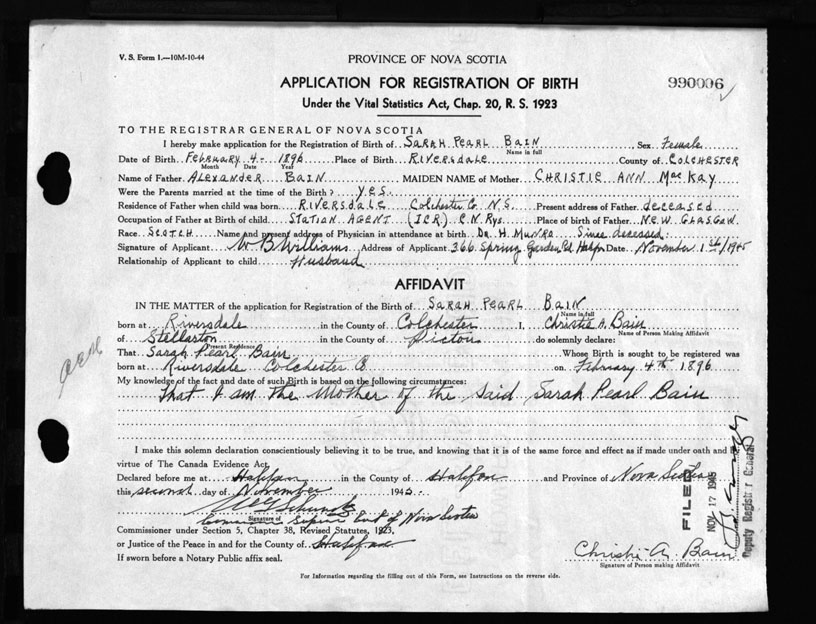 V. S. Form 1.—10M-10-44
PROVINCE OF NOVA SCOTIA
APPLICATION FOR REGISTRATION OF BIRTH
990006
Under the Vital Statistics Act, Chap. 20, R. S. 1923
TO THE REGISTRAR GENERAL OF NOVA SCOTIA
I hereby make application for the Registration of Birth of SARAH PEARL BAIN Sex Female
Name in full
Date of Birth FEBRUARY 4- 1896 Place of Birth RIVERSDALE County of COLCHESTER
Month Date Year
Name of Father ALEXANDER BAIN MAIDEN NAME of Mother CHRISTIE ANN MacKAY
Were the Parents married at the time of the Birth? YES.
Residence of Father when child was born RIVERSDALE Colchester Co N.S. Present address of Father deceased
Occupation of Father at Birth of child STATION AGENT (ICR) C.N.Rys Place of birth of Father NEW GLASGOW.
Race SCOTCH Name and present address of Physician in attendance at birth DR H. MUNRO Since deceased:
Signature of Applicant W B Williams Address of Applicant 366 Spring Garden Rd Halifax Date November 1st/1945
Relationship of Applicant to child Husband
AFFIDAVIT
IN THE MATTER of the application for Registration of the Birth of SARAH PEARL BAIN
Name in full
born at Riversdale in the County of Colchester I, Christie A. Bain
Name of Person Making Affidavit
of Stellarton in the County of Pictou do solemnly declare:
Present Residence
That Sarah Pearl Bain Whose Birth is sought to be registered was
born at Riversdale Colchester Co on February 4th 1896
My knowledge of the fact and date of such Birth is based on the following circumstances:
That I am the Mother of the said Sarah Pearl Bain
I make this solemn declaration conscientiously believing it to be true, and knowing that it is of the same force and effect as if made under oath and by
virtue of The Canada Evidence Act.
Declared before me at Halifax in the County of Halifax and Province of Nova Scotia
this second day of November 1945.
Signature of Supreme Court of Nova Scotia
Commissioner under Section 5, Chapter 38, Revised Statutes, 1923,
or Justice of the Peace in and for the County of Halifax
If sworn before a Notary Public affix seal.
Christie A. Bain
Signature of Person making Affidavit
For Information regarding the filling out of this Form, see Instructions on the reverse side.
FILED
NOV 17 1945
Deputy Registrar General